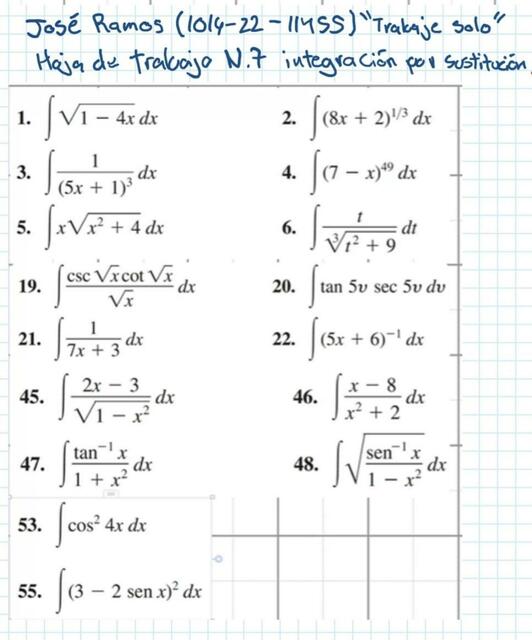 José Ramos (1014-22-11455) "Trabaje solo"
Hoja de trabajo N.7 integración por sustitución
1. ∫ √(1 − 4x) dx 2. ∫ (8x + 2)^{1/3} dx
3. ∫ 1/(5x + 1)³ dx 4. ∫ (7 − x)^{49} dx
5. ∫ x√(x² + 4) dx 6. ∫ t/∛(t² + 9) dt
19. ∫ (csc √x cot √x)/√x dx 20. ∫ tan 5v sec 5v dv
21. ∫ 1/(7x + 3) dx 22. ∫ (5x + 6)^{−1} dx
45. ∫ (2x − 3)/√(1 − x²) dx 46. ∫ (x − 8)/(x² + 2) dx
47. ∫ (tan^{−1} x)/(1 + x²) dx 48. ∫ √((sen^{−1} x)/(1 − x²)) dx
53. ∫ cos² 4x dx
55. ∫ (3 − 2 sen x)² dx